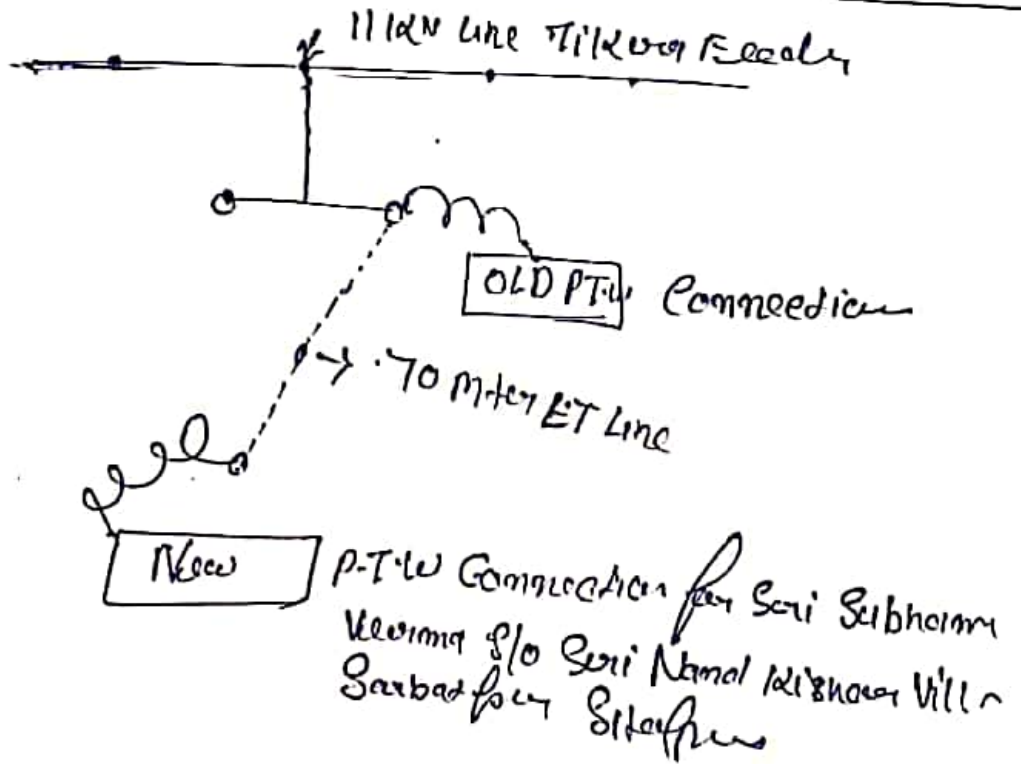 11 KV Line Tikwa Feeder
OLD PT.W Connection
70 Mter LT Line
New P.T.W Connection for Sri Subham
Verma S/o Sri Nand Kishor Vill-
Sarbatpur Sitapur